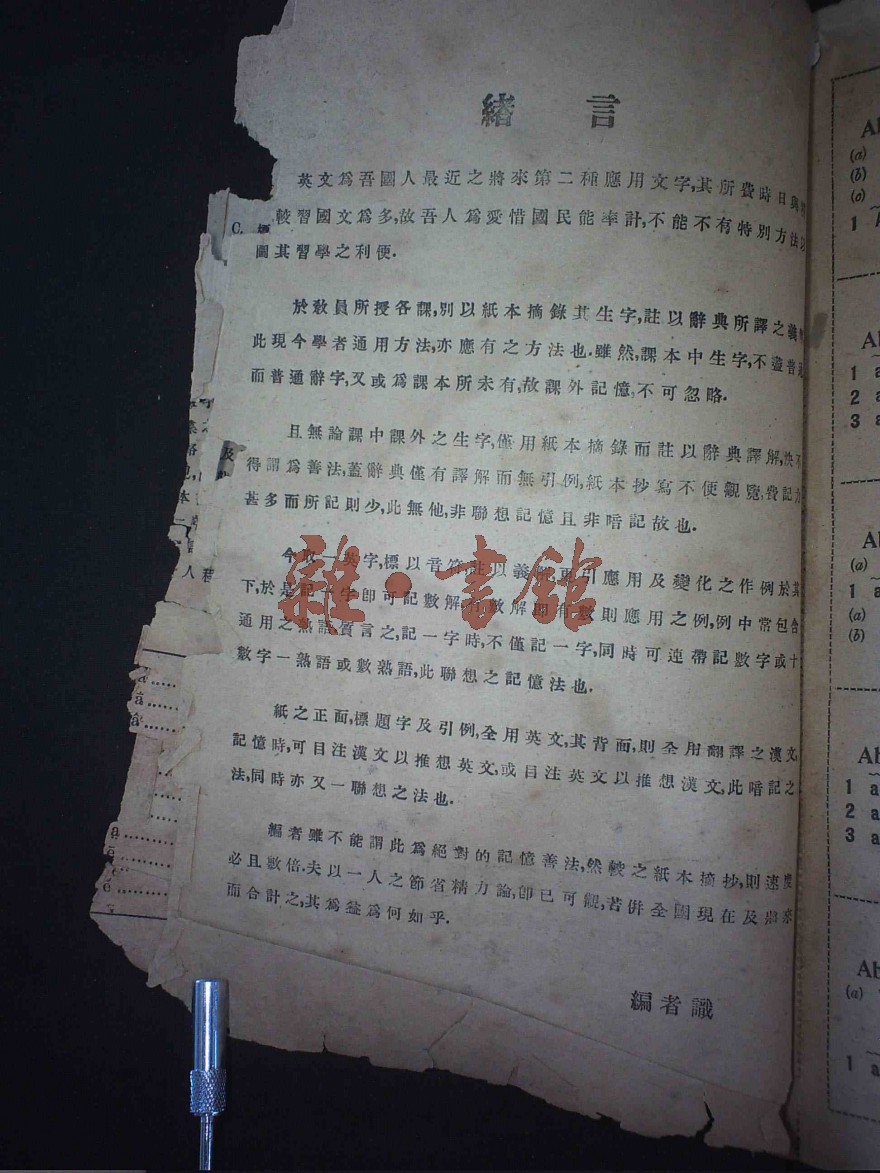 緒言
英文爲吾國人最近之將來第二種應用文字,其所費時日與
較習國文爲多,故吾人爲愛惜國民能率計,不能不有特別方法以
圖其習學之利便.
於敎員所授各課,別以紙本摘錄其生字,註以辭典所譯之義
此現今學者通用方法,亦應有之方法也.雖然,課本中生字,不盡普通
而普通辭字,又或爲課本所未有,故課外記憶,不可忽略.
且無論課中課外之生字,僅用紙本摘錄而註以辭典譯解,決不
得謂爲善法,蓋辭典僅有譯解而無引例,紙本抄寫不便觀覽,費記力
甚多而所記則少,此無他,非聯想記憶且非暗記故也.
今取一英字,標以音符註以義解,更引應用及變化之作例於其
下,於是記一字卽可記數解,有數解卽有數則應用之例,例中常包含
通用之熟語,質言之,記一字時,不僅記一字,同時可連帶記數字或十
數字一熟語或數熟語,此聯想之記憶法也.
紙之正面,標題字及引例,全用英文,其背面,則全用翻譯之漢文,
記憶時,可目注漢文以推想英文,或目注英文以推想漢文,此暗記之
法,同時亦又一聯想之法也.
編者雖不能謂此爲絕對的記憶善法,然較之紙本摘抄,則速度
必且數倍.夫以一人之節省精力論,卽已可觀,若併全國現在及將來
而合計之,其爲益爲何如乎.
編者識
雜·書館
C.
及
人
Ab
(a)
(b)
(c)
1
Ab
1 a
2 a
3 a
Ab
(a)
1 a
(a)
(b)
Ab
1 a
2 a
3 a
Ab
(a)
1 a